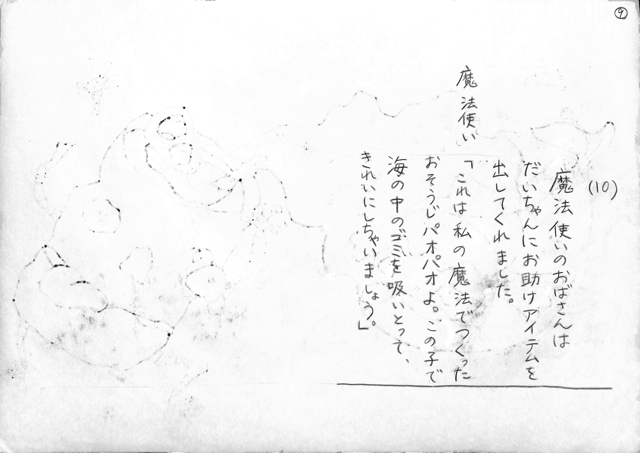 ⑨
(10)
魔法使いのおばさんは
だいちゃんにお助けアイテムを
出してくれました。
魔法使い
「これは私の魔法でつくった
おそうじパオパオよ。この子で
海の中のゴミを吸いとって、
きれいにしちゃいましょう。」